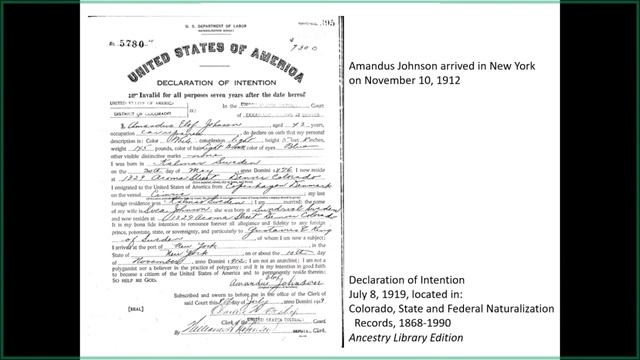 U. S. DEPARTMENT OF LABOR
NATURALIZATION SERVICE
395
No. 5780
UNITED STATES OF AMERICA
DECLARATION OF INTENTION
Invalid for all purposes seven years after the date hereof
UNITED STATES OF AMERICA
DISTRICT OF COLORADO
In the Court
of
I, Amandus Elof Johnson, aged 43 years,
occupation , do declare on oath that my personal
description is: Color White, complexion light, height 5 feet 8 inches,
weight 145 pounds, color of hair light , color of eyes Blue
other visible distinctive marks none
I was born in Kalmar Sweden
on the 20th day of May, anno Domini 1876; I now reside
at 1329 Acoma Street Denver Colorado
I emigrated to the United States of America from Copenhagen Denmark
on the vessel ; my last
foreign residence was Kalmar Sweden; I am married; the name
of my wife is Johnson; she was born at Sweden
and now resides at 1329 Acoma Street Denver Colorado
It is my bona fide intention to renounce forever all allegiance and fidelity to any foreign
prince, potentate, state, or sovereignty, and particularly to Gustavus V King
of Sweden, of whom I am now a subject;
I arrived at the port of New York, in the
State of New York, on or about the 10th day
of November, anno Domini 1912; I am not an anarchist; I am not a
polygamist nor a believer in the practice of polygamy; and it is my intention in good faith
to become a citizen of the United States of America and to permanently reside therein:
SO HELP ME GOD.
Amandus Elof Johnson
Subscribed and sworn to before me in the office of the Clerk of
said Court this 8th day of July, anno Domini 1919
[SEAL]
Clerk of the Court
By , Clerk
Amandus Johnson arrived in New York
on November 10, 1912
Declaration of Intention
July 8, 1919, located in:
Colorado, State and Federal Naturalization
Records, 1868-1990
Ancestry Library Edition